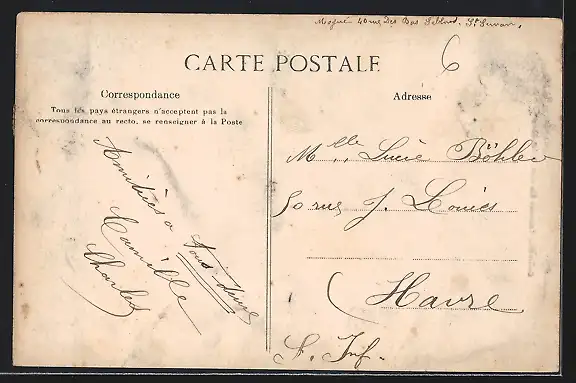 40 rue Des Bas Sablons. St Servan.
6
CARTE POSTALE
Correspondance
Tous les pays étrangers n'acceptent pas la
correspondance au recto, se renseigner à la Poste
Amitiés à
tous deux
Camille
Charles
Adresse
Mlle Lucie Böhler
50 rue J. Louis
Havre
S. Inf.